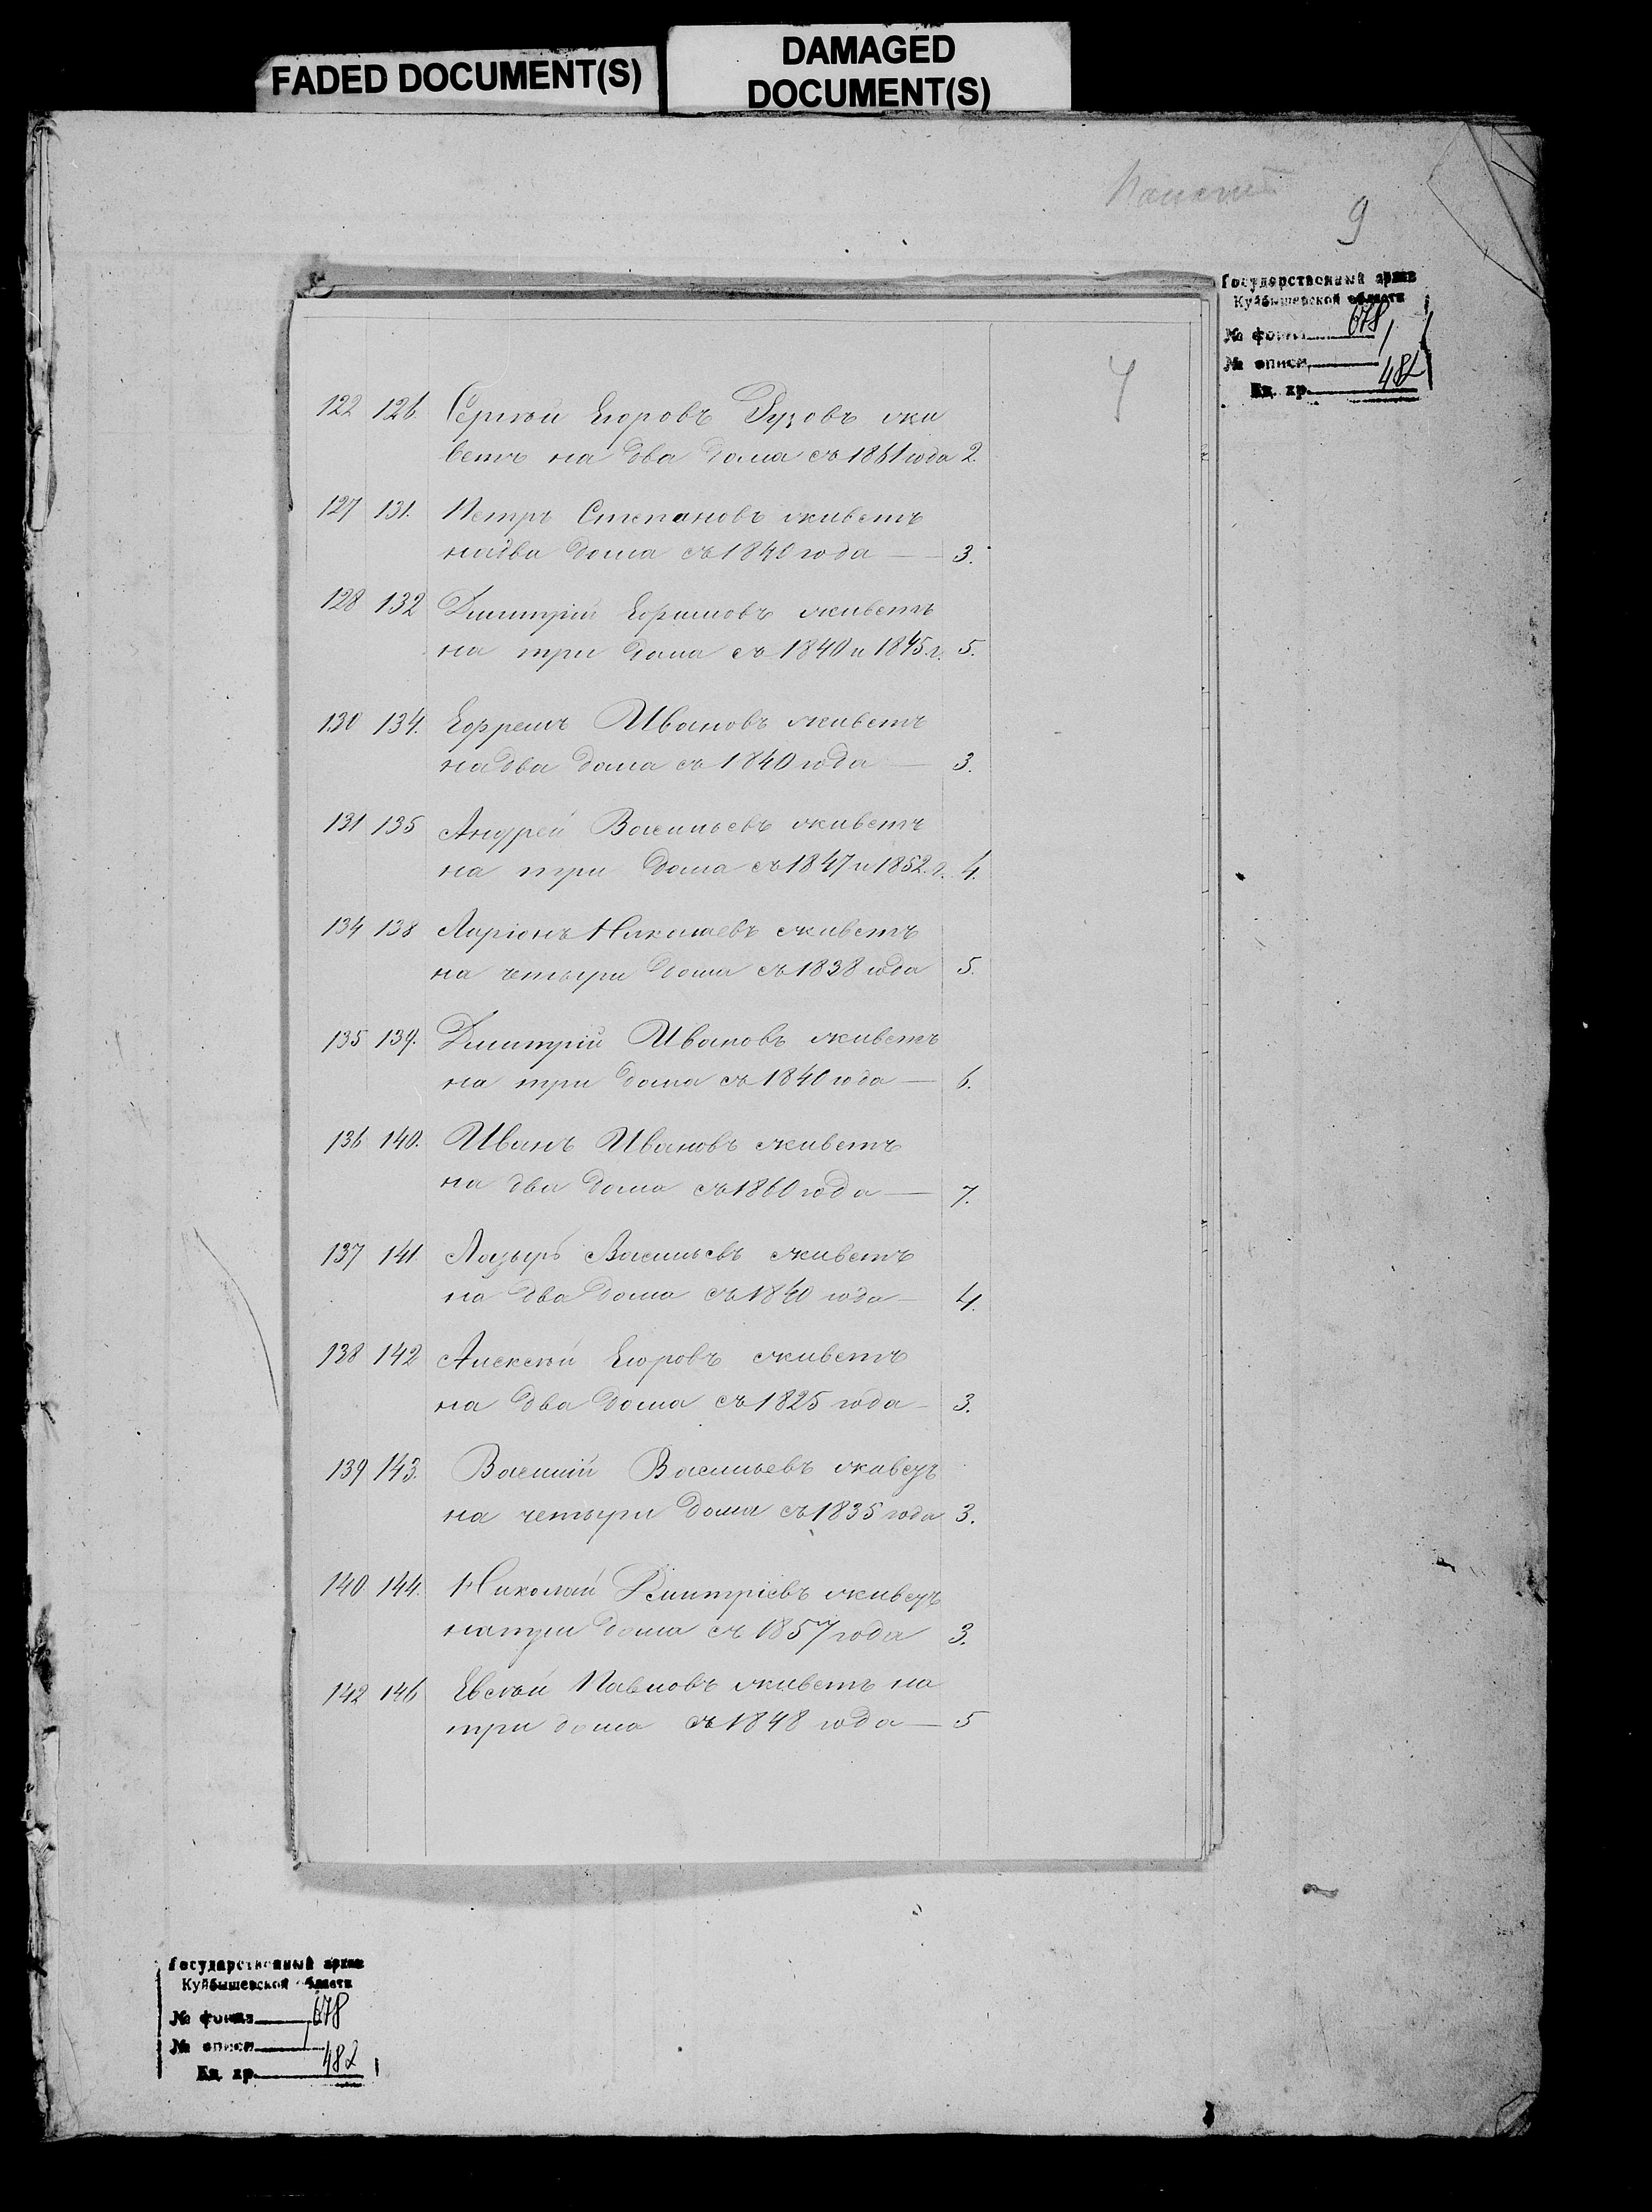 FADED DOCUMENT(S)
DAMAGED
DOCUMENT(S)
9
Государственный архив
Куйбышевской области
№ фонда 678
№ описи 1
Ед. хр. 482
4
122 126. Сергѣй Егоровъ Гузовъ жи
ветъ на два дома съ 1861 года 2.
127 131. Петръ Степановъ живетъ
на два дома съ 1840 года — 3.
128 132 Дмитрій Ефимовъ живетъ
на три дома съ 1840 и 1845.г. 5.
130 134. Ефремъ Ивановъ живетъ
на два дома съ 1840 года — 3.
131 135 Андрей Васильевъ живетъ
на три дома съ 1847 и 1852.г. 4.
134 138 Ларіонъ Николаевъ живетъ
на четыри дома съ 1838 года 5.
135 139. Дмитрій Ивановъ живетъ
на три дома съ 1840 года — 6.
136 140. Иванъ Ивановъ живетъ
на два дома съ 1860 года — 7.
137 141 Лазырь Васильевъ живетъ
на два дома съ 1840 года — 4.
138 142 Алексѣй Егоровъ живетъ
на два дома съ 1825 года — 3.
139 143. Василій Васильевъ живетъ
на четыри дома съ 1835 года 3.
140 144. Николай Дмитріевъ живетъ
на три дома съ 1857 года 3.
142 146 Евсѣй Павловъ живетъ на
три дома съ 1848 года — 5
Государственный архив
Куйбышевской области
№ фонда 678
№ описи 1
Ед. хр. 482